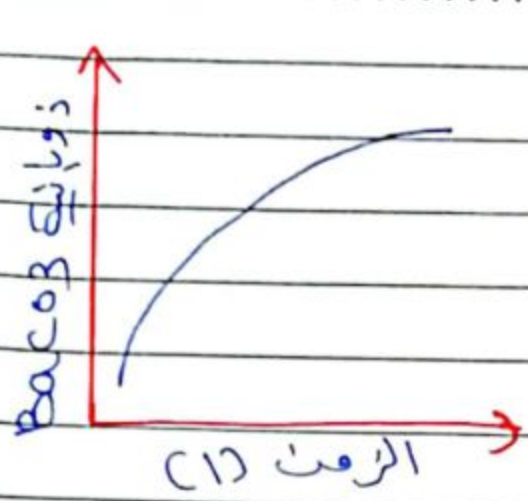 ذوبانية BaCO3
الزمن (1)